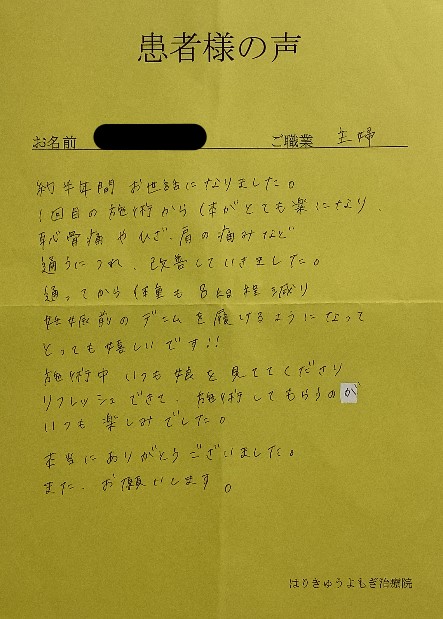 患者様の声
お名前 ご職業 主婦
約半年間 お世話になりました。
1回目の施術から 体がとても楽になり
恥骨痛や ひざ、肩の痛みなど
通うにつれ、改善していきました。
通ってから 体重も 8kg程減り
妊娠前の デニムを履けるようになって
とっても嬉しいです!!
施術中 いつも娘を見ててくださり
リフレッシュできて、施術してもらうのが
いつも楽しみでした。
本当にありがとうございました。
また、お願いします。
はりきゅうよもぎ治療院